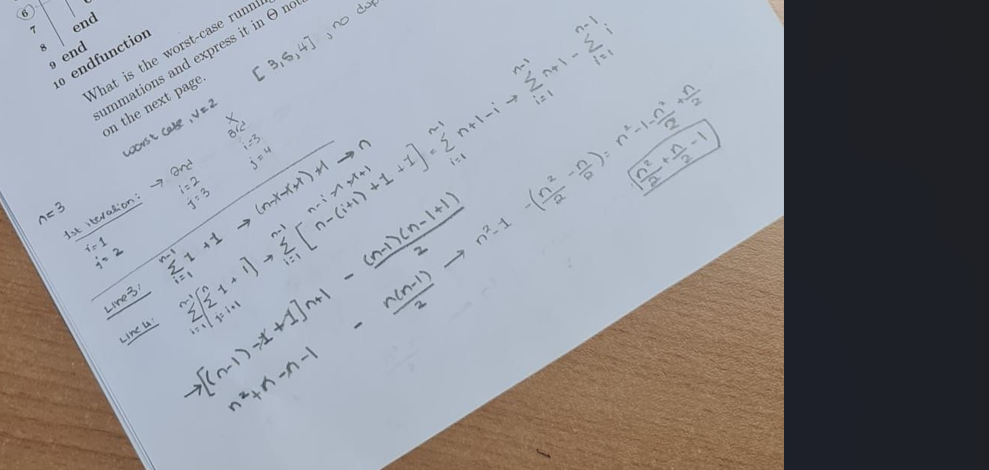 6
7 end
8 end
9 end
10 endfunction
What is the worst-case runnin
summations and express it in Θ not
on the next page.
[3,5,4], no dup
worst case, v=2
X
n=3
1st iteration: → 2nd 3rd
i=1 i=2 i=3
j=2 j=3 j=4
Line 3: \sum_{i=1}^{n-1} 1 + 1 → (n-1-1+1)+1 → n
Line 4: \sum_{i=1}^{n-1} [\sum_{j=i+1}^{n} 1 + 1] → \sum_{i=1}^{n-1} [n-(i+1)+1+1] = \sum_{i=1}^{n-1} n+1-i → \sum_{i=1}^{n-1} n+1 - \sum_{i=1}^{n-1} i
n-i-1+1+1
→ [(n-1)-1+1] n+1 - \frac{(n-1)(n-1+1)}{2}
n²+n-n-1 - \frac{n(n-1)}{2} → n²-1 - (\frac{n²}{2} - \frac{n}{2}) = n²-1-\frac{n²}{2}+\frac{n}{2}
\frac{n²}{2}+\frac{n}{2}-1